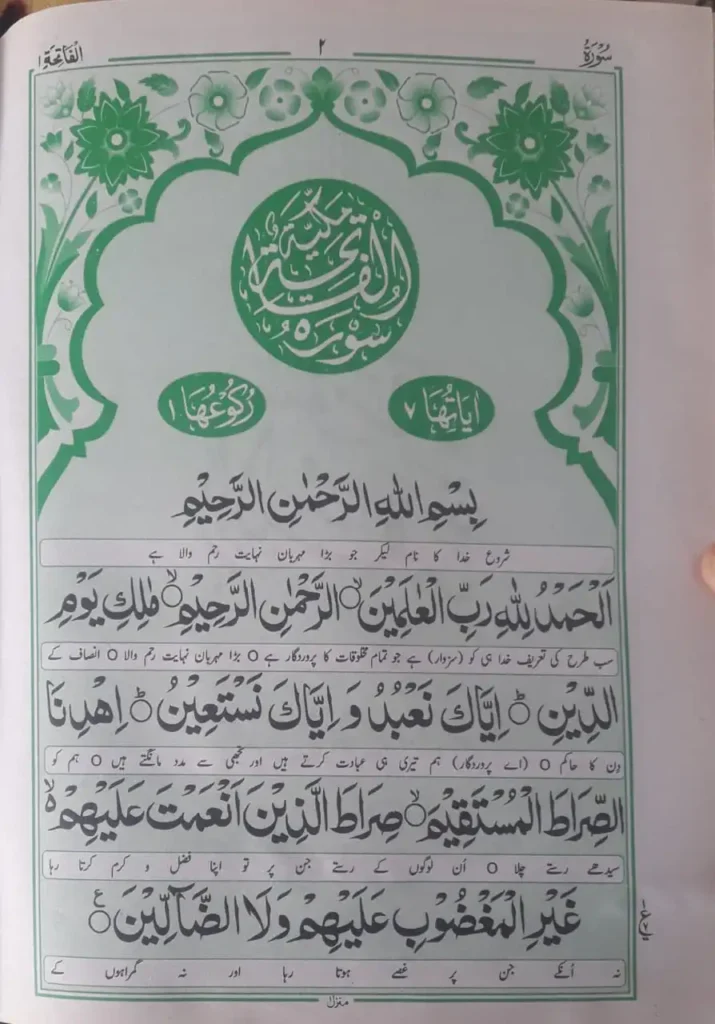 سُوْرَةُ ٢ اَلْفَاتِحَةِ ١
سُوْرَةُ الْفَاتِحَةِ مَكِّيَّةٌ
اٰيَاتُهَا ٧ رُكُوْعُهَا ١
بِسْمِ اللّٰهِ الرَّحْمٰنِ الرَّحِيْمِ
شروع خدا کا نام لیکر جو بڑا مہربان نہایت رحم والا ہے
اَلْحَمْدُ لِلّٰهِ رَبِّ الْعٰلَمِيْنَ ۙ○ الرَّحْمٰنِ الرَّحِيْمِ ۙ○ مٰلِكِ يَوْمِ
سب طرح کی تعریف خدا ہی کو (سزوار) ہے جو تمام مخلوقات کا پروردگار ہے O بڑا مہربان نہایت رحم والا O انصاف کے
الدِّيْنِ ؕ○ اِيَّاكَ نَعْبُدُ وَ اِيَّاكَ نَسْتَعِيْنُ ؕ○ اِهْدِنَا
دن کا حاکم O (اے پروردگار) ہم تیری ہی عبادت کرتے ہیں اور تجھی سے مدد مانگتے ہیں O ہم کو
الصِّرَاطَ الْمُسْتَقِيْمَ ۙ○ صِرَاطَ الَّذِيْنَ اَنْعَمْتَ عَلَيْهِمْ ۙ۬
سیدھے رستے چلا O اُن لوگوں کے رستے جن پر تو اپنا فضل و کرم کرتا رہا
غَيْرِ الْمَغْضُوْبِ عَلَيْهِمْ وَلَا الضَّآلِّيْنَ ۧ○
نہ اُنکے جن پر غصے ہوتا رہا اور نہ گمراہوں کے
منزل ١